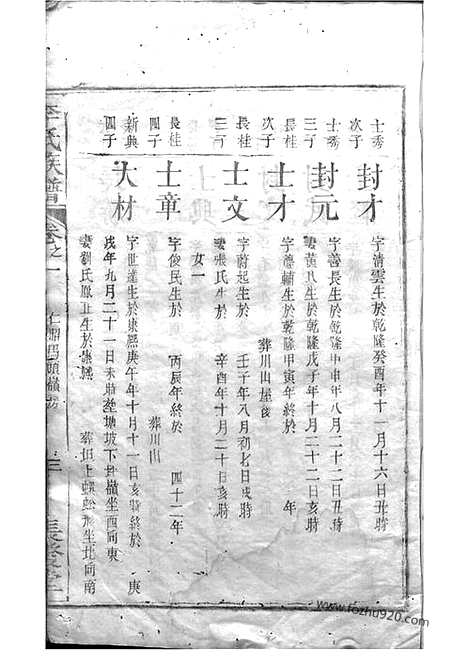 士秀
次子
封才
字清雲生於乾隆癸酉年十一月十六日丑時
士秀
三子
封元
字善長生於乾隆甲申年八月二十二日丑時
妻黃氏生於乾隆戊子年十月二十二日亥時
長桂
次子
士才
字贊輔生於乾隆甲寅年終於 年
葬川山屋後
長桂
三子
士文
字蔚起生於 壬子年八月初七日戌時
妻張氏生於 辛酉年十月二十日亥時
女一
長桂
四子
士章
字俊民生於 丙辰年終於 四十二年
葬川山
新典
四子
大材
字世達生於康熙庚午年十月十一日亥時終於 庚
戌年九月二十一日未時葬坳坡下 嶺坐酉向東
妻劉氏鳳 生於康熙 葬 上蜈蚣形坐北向南
李氏族譜
卷之一
三
www.fozhu920.com